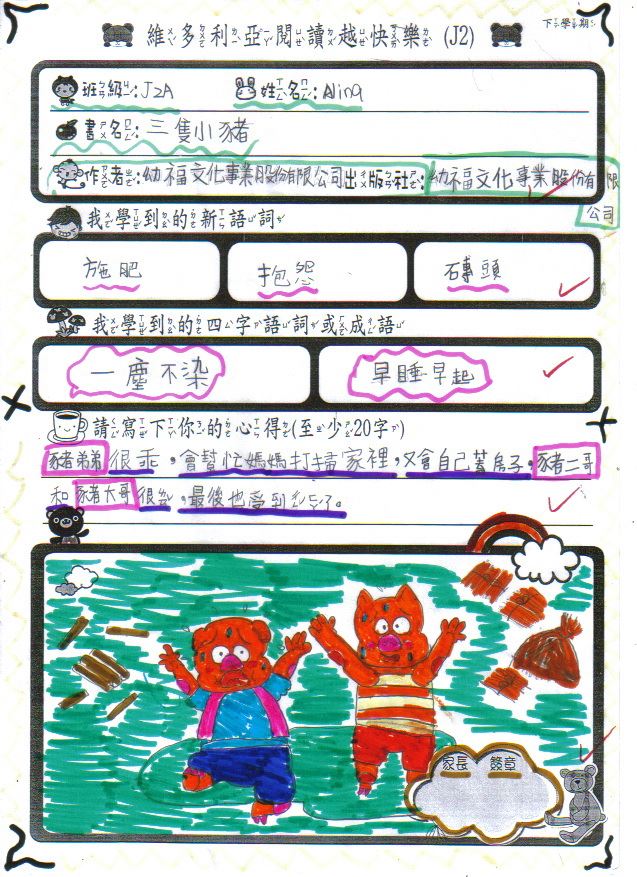 下學期
維多利亞閱讀越快樂 (J2)
班級: J2A 姓名: Alina
書名: 三隻小豬
作者: 幼福文化事業股份有限公司 出版社: 幼福文化事業股份有限公司
我學到的新語詞
施肥 抱怨 磚頭
我學到的四字語詞或成語
一塵不染 早睡早起
請寫下你的心得(至少20字)
豬弟弟很乖,會幫忙媽媽打掃家裡,又會自己蓋房子,豬二哥
和豬大哥很ㄌㄢˇ,最後也受到ㄔㄥˊ ㄈㄚˊ了。
家長 簽章